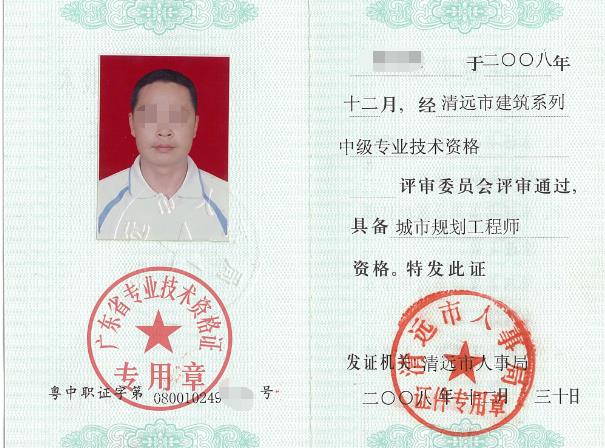 广东省专业技术资格证
专用章
粤中职证字第 080010249 号
于二〇〇八年
十二月，经 清远市建筑系列
中级专业技术资格
评审委员会评审通过，
具备 城市规划工程师
资格。特发此证
清远市人事局
证件专用章
发证机关 清远市人事局
二〇〇八年十二月 三十日